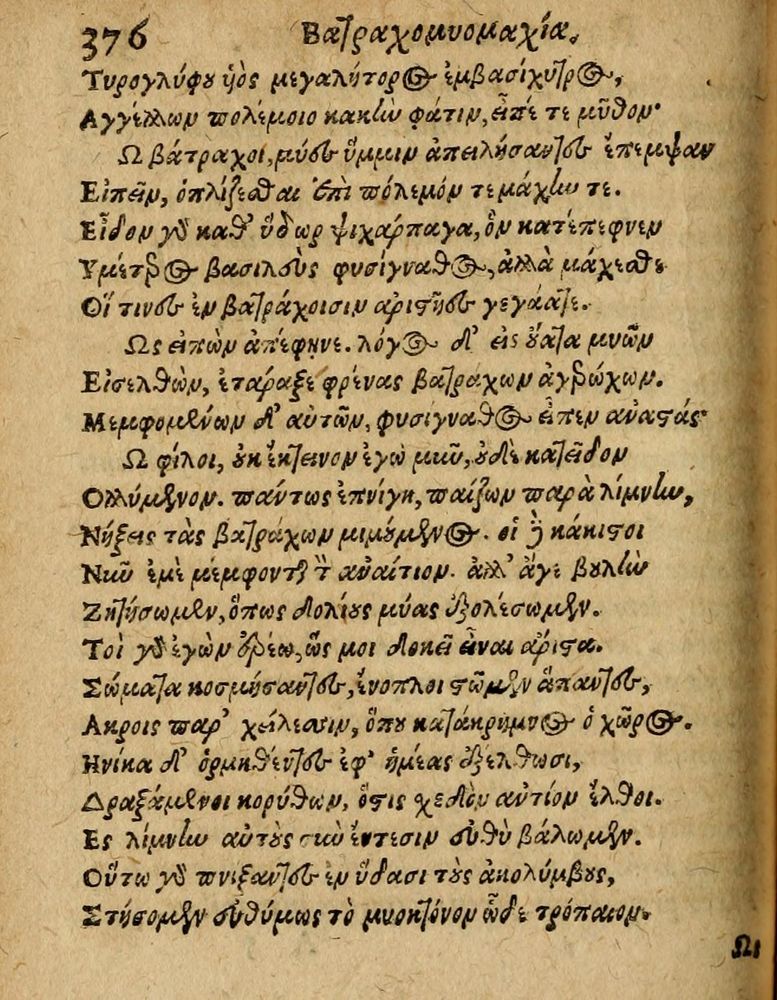 376 Βατραχομυομαχία.
Τυρογλύφου ὑὸς μεγαλήτορος ἐμβασίχυτρος,
Αγγέλλων πολέμοιο κακὴν φάτιν, εἶπέ τε μῦθον·
Ω βάτραχοι, μύες ὔμμιν ἀπειλήσαντες ἔπεμψαν
Εἰπεῖν, ὁπλίζεσθαι ἐπὶ πόλεμόν τε μάχην τε.
Εἶδον γὰρ καθ' ὕδωρ ψιχάρπαγα, ὃν κατέπεφνεν
Υμέτερος βασιλεὺς φυσίγναθος, ἀλλὰ μάχεσθε
Οἵ τινες ἐν βατράχοισιν ἀριστῆες γεγάατε.
Ως εἰπὼν ἀπέφηνε. λόγος δ' εἰς οὔατα μυῶν
Εἰσελθὼν, ἐτάραξε φρένας βατράχων ἀγερώχων.
Μεμφομένων δ' αὐτῶν, φυσίγναθος εἶπεν ἀναστάς·
Ω φίλοι, οὐκ ἔκτεινον ἐγὼ μῦν, οὐδὲ κατεῖδον
Ολλύμενον. πάντως ἐπνίγη, παίζων παρὰ λίμνην,
Νήξεις τὰς βατράχων μιμούμενος. οἱ δὲ κάκιστοι
Νῦν ἐμὲ μέμφονται τὸν ἀναίτιον. ἀλλ' ἄγε βουλὴν
Ζητήσωμεν, ὅπως δολίους μύας ἐξολέσωμεν.
Τοὶ γὰρ ἐγὼν ἐρέω, ὥς μοι δοκεῖ εἶναι ἄριστα.
Σώματα κοσμήσαντες, ἔνοπλοι στῶμεν ἅπαντες,
Ακροις παρ' χείλεσιν, ὅπου κατάκρημνος ὁ χῶρος.
Ηνίκα δ' ὁρμηθέντες ἐφ' ἡμέας ἐξέλθωσι,
Δραξάμενοι κορύθων, ὅστις σχεδὸν αὐτίον ἔλθοι.
Ες λίμνην αὐτοὺς σὺν ἔντεσιν εὐθὺ βάλωμεν.
Οὕτω γὰρ πνίξαντες ἐν ὕδασι τοὺς ἀκολύμβους,
Στήσομεν εὐθύμως τὸ μυοκτόνον ὧδε τρόπαιον.
Ωι